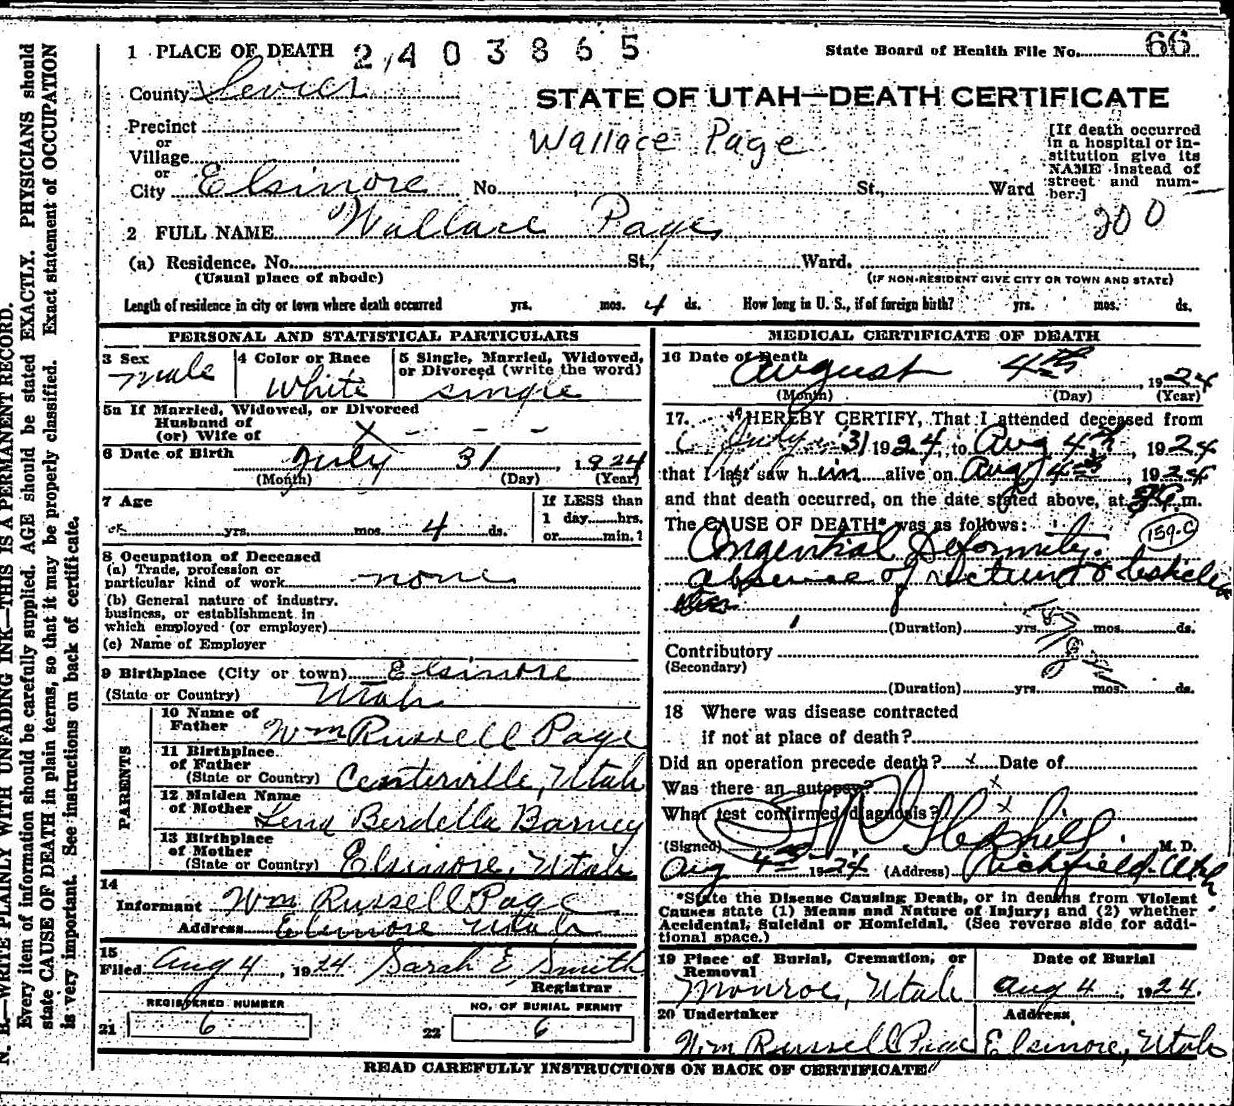 1 PLACE OF DEATH 2403865 State Board of Health File No. 66
County Sevier
STATE OF UTAH—DEATH CERTIFICATE
Precinct
or
Village
or
City Elsinore No. St., Ward
Wallace Page
[If death occurred
in a hospital or in-
stitution give its
NAME instead of
street and num-
ber.]
200
2 FULL NAME Wallace Page
(a) Residence. No. St., Ward.
(Usual place of abode) (IF NON-RESIDENT GIVE CITY OR TOWN AND STATE)
Length of residence in city or town where death occurred yrs. mos. 4 ds. How long in U. S., if of foreign birth? yrs. mos. ds.
PERSONAL AND STATISTICAL PARTICULARS
3 Sex
male
4 Color or Race
White
5 Single, Married, Widowed,
or Divorced (write the word)
single
5a If Married, Widowed, or Divorced
Husband of
(or) Wife of X - - -
6 Date of Birth
July 31, 1924
(Month) (Day) (Year)
7 Age
yrs. mos. 4 ds.
If LESS than
1 day hrs.
or min.?
8 Occupation of Deceased
(a) Trade, profession or
particular kind of work none
(b) General nature of industry.
business, or establishment in
which employed (or employer)
(c) Name of Employer
9 Birthplace (City or town) Elsinore
(State or Country) Utah
PARENTS
10 Name of
Father Wm Russell Page
11 Birthplace
of Father
(State or Country) Centerville, Utah
12 Maiden Name
of Mother Lena Berdella Barney
13 Birthplace
of Mother
(State or Country) Elsinore, Utah
14
Informant Wm Russell Page
Address Elsinore Utah
15
Filed Aug 4, 1924 Sarah E Smith
Registrar
REGISTERED NUMBER
21 6
NO. OF BURIAL PERMIT
22 6
MEDICAL CERTIFICATE OF DEATH
16 Date of Death
August 4th, 1924
(Month) (Day) (Year)
17. I HEREBY CERTIFY, That I attended deceased from
July 31 1924, to Aug 4th, 1924
that I last saw him alive on Aug 4th, 1924
and that death occurred, on the date stated above, at m.
The CAUSE OF DEATH* was as follows: 159-C
Congenital Deformity.
absence of rectum & testicles
(Duration) yrs. mos. ds.
Contributory
(Secondary)
(Duration) yrs. mos. ds.
18 Where was disease contracted
if not at place of death?
Did an operation precede death? x Date of
Was there an autopsy? x
What test confirmed diagnosis? x
(Signed) M. D.
Aug 4th 1924 (Address) Richfield Utah
*State the Disease Causing Death, or in deaths from Violent
Causes state (1) Means and Nature of Injury; and (2) whether
Accidental, Suicidal or Homicidal. (See reverse side for addi-
tional space.)
19 Place of Burial, Cremation, or
Removal
Monroe, Utah
Date of Burial
Aug 4, 1924.
20 Undertaker
Wm Russell Page
Address
Elsinore, Utah
READ CAREFULLY INSTRUCTIONS ON BACK OF CERTIFICATE
N. B.—WRITE PLAINLY WITH UNFADING INK—THIS IS A PERMANENT RECORD.
Every item of information should be carefully supplied. AGE should be stated EXACTLY. PHYSICIANS should
state CAUSE OF DEATH in plain terms, so that it may be properly classified. Exact statement of OCCUPATION
is very important. See instructions on back of certificate.